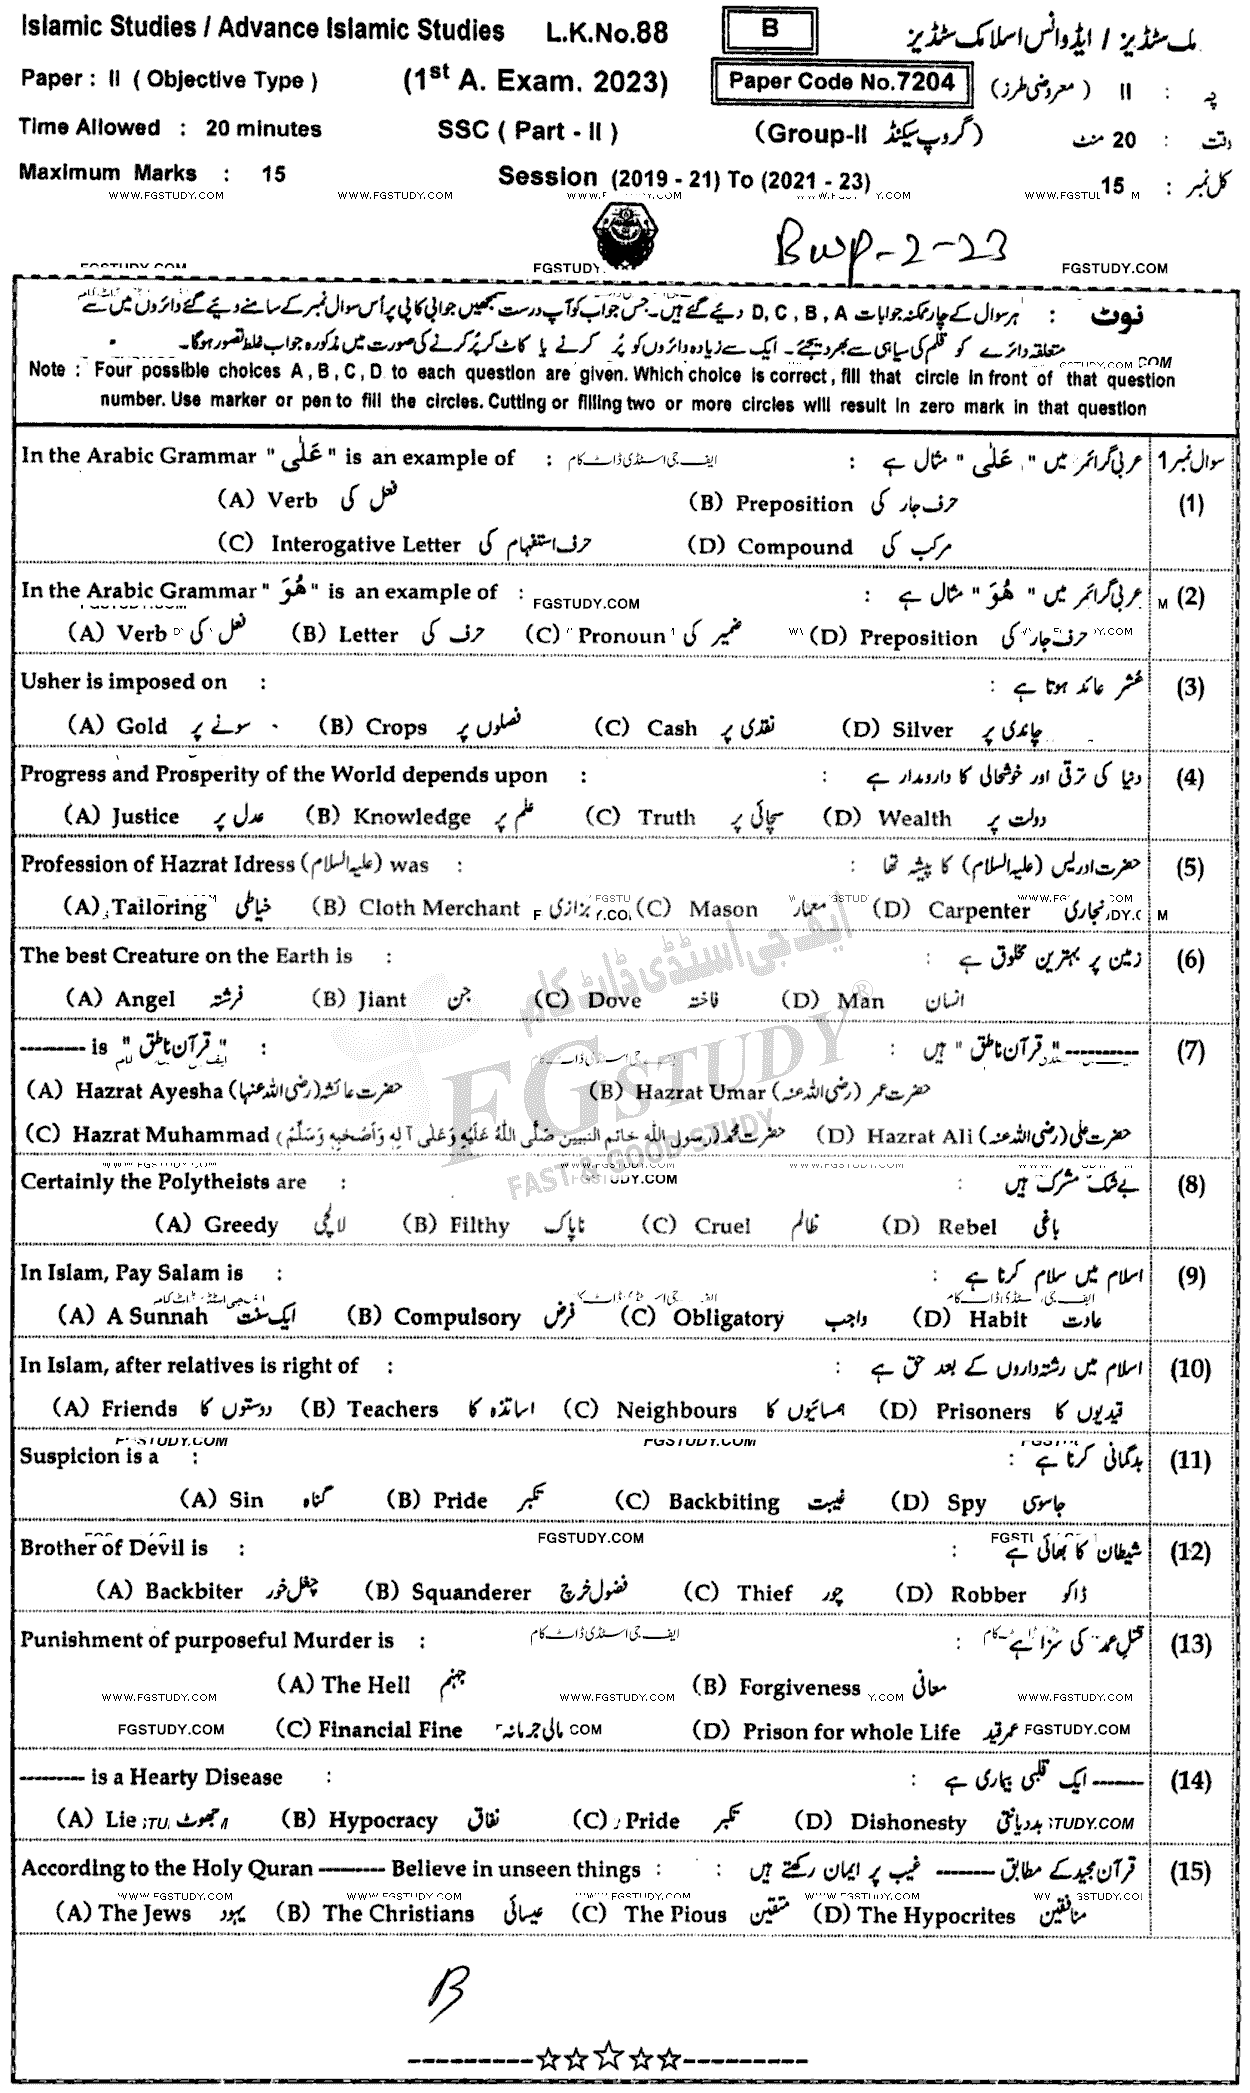 Islamic Studies / Advance Islamic Studies L.K.No.88 B مک سٹڈیز / ایڈوانس اسلامک سٹڈیز
Paper : II ( Objective Type ) (1st A. Exam. 2023) Paper Code No.7204 II ( معروضی طرز )
Time Allowed : 20 minutes SSC ( Part - II ) (Group-II گروپ سیکنڈ) وقت : 20 منٹ
Maximum Marks : 15 Session (2019 - 21) To (2021 - 23) کل نمبر : 15
WWW.FGSTUDY.COM WWW.FGSTUDY.COM WWW.FGSTUDY.COM
Bwp-2-23
FGSTUDY.COM FGSTUDY. FGSTUDY.COM
نوٹ : ہر سوال کے چار ممکنہ جوابات D, C, B, A دیئے گئے ہیں۔ جس جواب کو آپ درست سمجھیں جوابی کاپی پر اُس سوال نمبر کے سامنے دیئے گئے دائروں میں سے
متعلقہ دائرے کو قلم کی سیاہی سے بھر دیجئے۔ ایک سے زیادہ دائروں کو پُر کرنے یا کاٹ کر پُر کرنے کی صورت میں مذکورہ جواب غلط تصور ہوگا۔
Note : Four possible choices A , B , C , D to each question are given. Which choice is correct , fill that circle in front of that question
number. Use marker or pen to fill the circles. Cutting or filling two or more circles will result in zero mark in that question
In the Arabic Grammar " عَلٰی " is an example of : ایف جی اسٹڈی ڈاٹ کام عربی گرائمر میں " عَلٰی " مثال ہے : سوال نمبر 1
(A) Verb فعل کی (B) Preposition حرف جار کی (1)
(C) Interogative Letter حرف استفہام کی (D) Compound مرکب کی
In the Arabic Grammar " هُوَ " is an example of : FGSTUDY.COM عربی گرائمر میں " هُوَ " مثال ہے : (2)
(A) Verb فعل کی (B) Letter حرف کی (C) Pronoun ضمیر کی (D) Preposition حرف جار کی
Usher is imposed on : عُشر عائد ہوتا ہے : (3)
(A) Gold سونے پر (B) Crops فصلوں پر (C) Cash نقدی پر (D) Silver چاندی پر
Progress and Prosperity of the World depends upon : دنیا کی ترقی اور خوشحالی کا دارومدار ہے : (4)
(A) Justice عدل پر (B) Knowledge علم پر (C) Truth سچائی پر (D) Wealth دولت پر
Profession of Hazrat Idress (علیہ السلام) was : حضرت ادریس (علیہ السلام) کا پیشہ تھا : (5)
(A) Tailoring خیاطی (B) Cloth Merchant بزازی (C) Mason معمار (D) Carpenter نجاری
The best Creature on the Earth is : زمین پر بہترین مخلوق ہے : (6)
(A) Angel فرشتہ (B) Jiant جن (C) Dove فاختہ (D) Man انسان
ایف جی اسٹڈی ڈاٹ کام
FGSTUDY®
FAST & GOOD STUDY
--------- is " قرآن ناطق " : ---------- " قرآن ناطق " ہیں : (7)
(A) Hazrat Ayesha (رضی اللہ عنہا) حضرت عائشہ (B) Hazrat Umar (رضی اللہ عنہ) حضرت عمر
(C) Hazrat Muhammad (رسول اللہ خاتم النبیین صَلَّی اللہُ عَلَیْہِ وَعَلٰی آلِہٖ وَاَصْحٰبِہٖ وَسَلَّمَ) حضرت محمد (D) Hazrat Ali (رضی اللہ عنہ) حضرت علی
Certainly the Polytheists are : بے شک مشرک ہیں : (8)
(A) Greedy لالچی (B) Filthy ناپاک (C) Cruel ظالم (D) Rebel باغی
In Islam, Pay Salam is : اسلام میں سلام کرنا ہے : (9)
(A) A Sunnah ایک سنت (B) Compulsory فرض (C) Obligatory واجب (D) Habit عادت
In Islam, after relatives is right of : اسلام میں رشتہ داروں کے بعد حق ہے : (10)
(A) Friends دوستوں کا (B) Teachers اساتذہ کا (C) Neighbours ہمسائیوں کا (D) Prisoners قیدیوں کا
Suspicion is a : بدگمانی کرنا ہے : (11)
(A) Sin گناہ (B) Pride تکبر (C) Backbiting غیبت (D) Spy جاسوسی
FGSTUDY.COM
Brother of Devil is : شیطان کا بھائی ہے : (12)
(A) Backbiter چغل خور (B) Squanderer فضول خرچ (C) Thief چور (D) Robber ڈاکو
Punishment of purposeful Murder is : ایف جی اسٹڈی ڈاٹ کام قتلِ عمد کی سزا ہے : (13)
(A) The Hell جہنم (B) Forgiveness معافی
WWW.FGSTUDY.COM WWW.FGSTUDY.COM WWW.FGSTUDY.COM
FGSTUDY.COM (C) Financial Fine مالی جرمانہ (D) Prison for whole Life عمر قید FGSTUDY.COM
--------- is a Hearty Disease : ------- ایک قلبی بیماری ہے : (14)
(A) Lie جھوٹ (B) Hypocracy نفاق (C) Pride تکبر (D) Dishonesty بددیانتی
According to the Holy Quran --------- Believe in unseen things : قرآن مجید کے مطابق -------- غیب پر ایمان رکھتے ہیں : (15)
(A) The Jews یہود (B) The Christians عیسائی (C) The Pious متقین (D) The Hypocrites منافقین
B